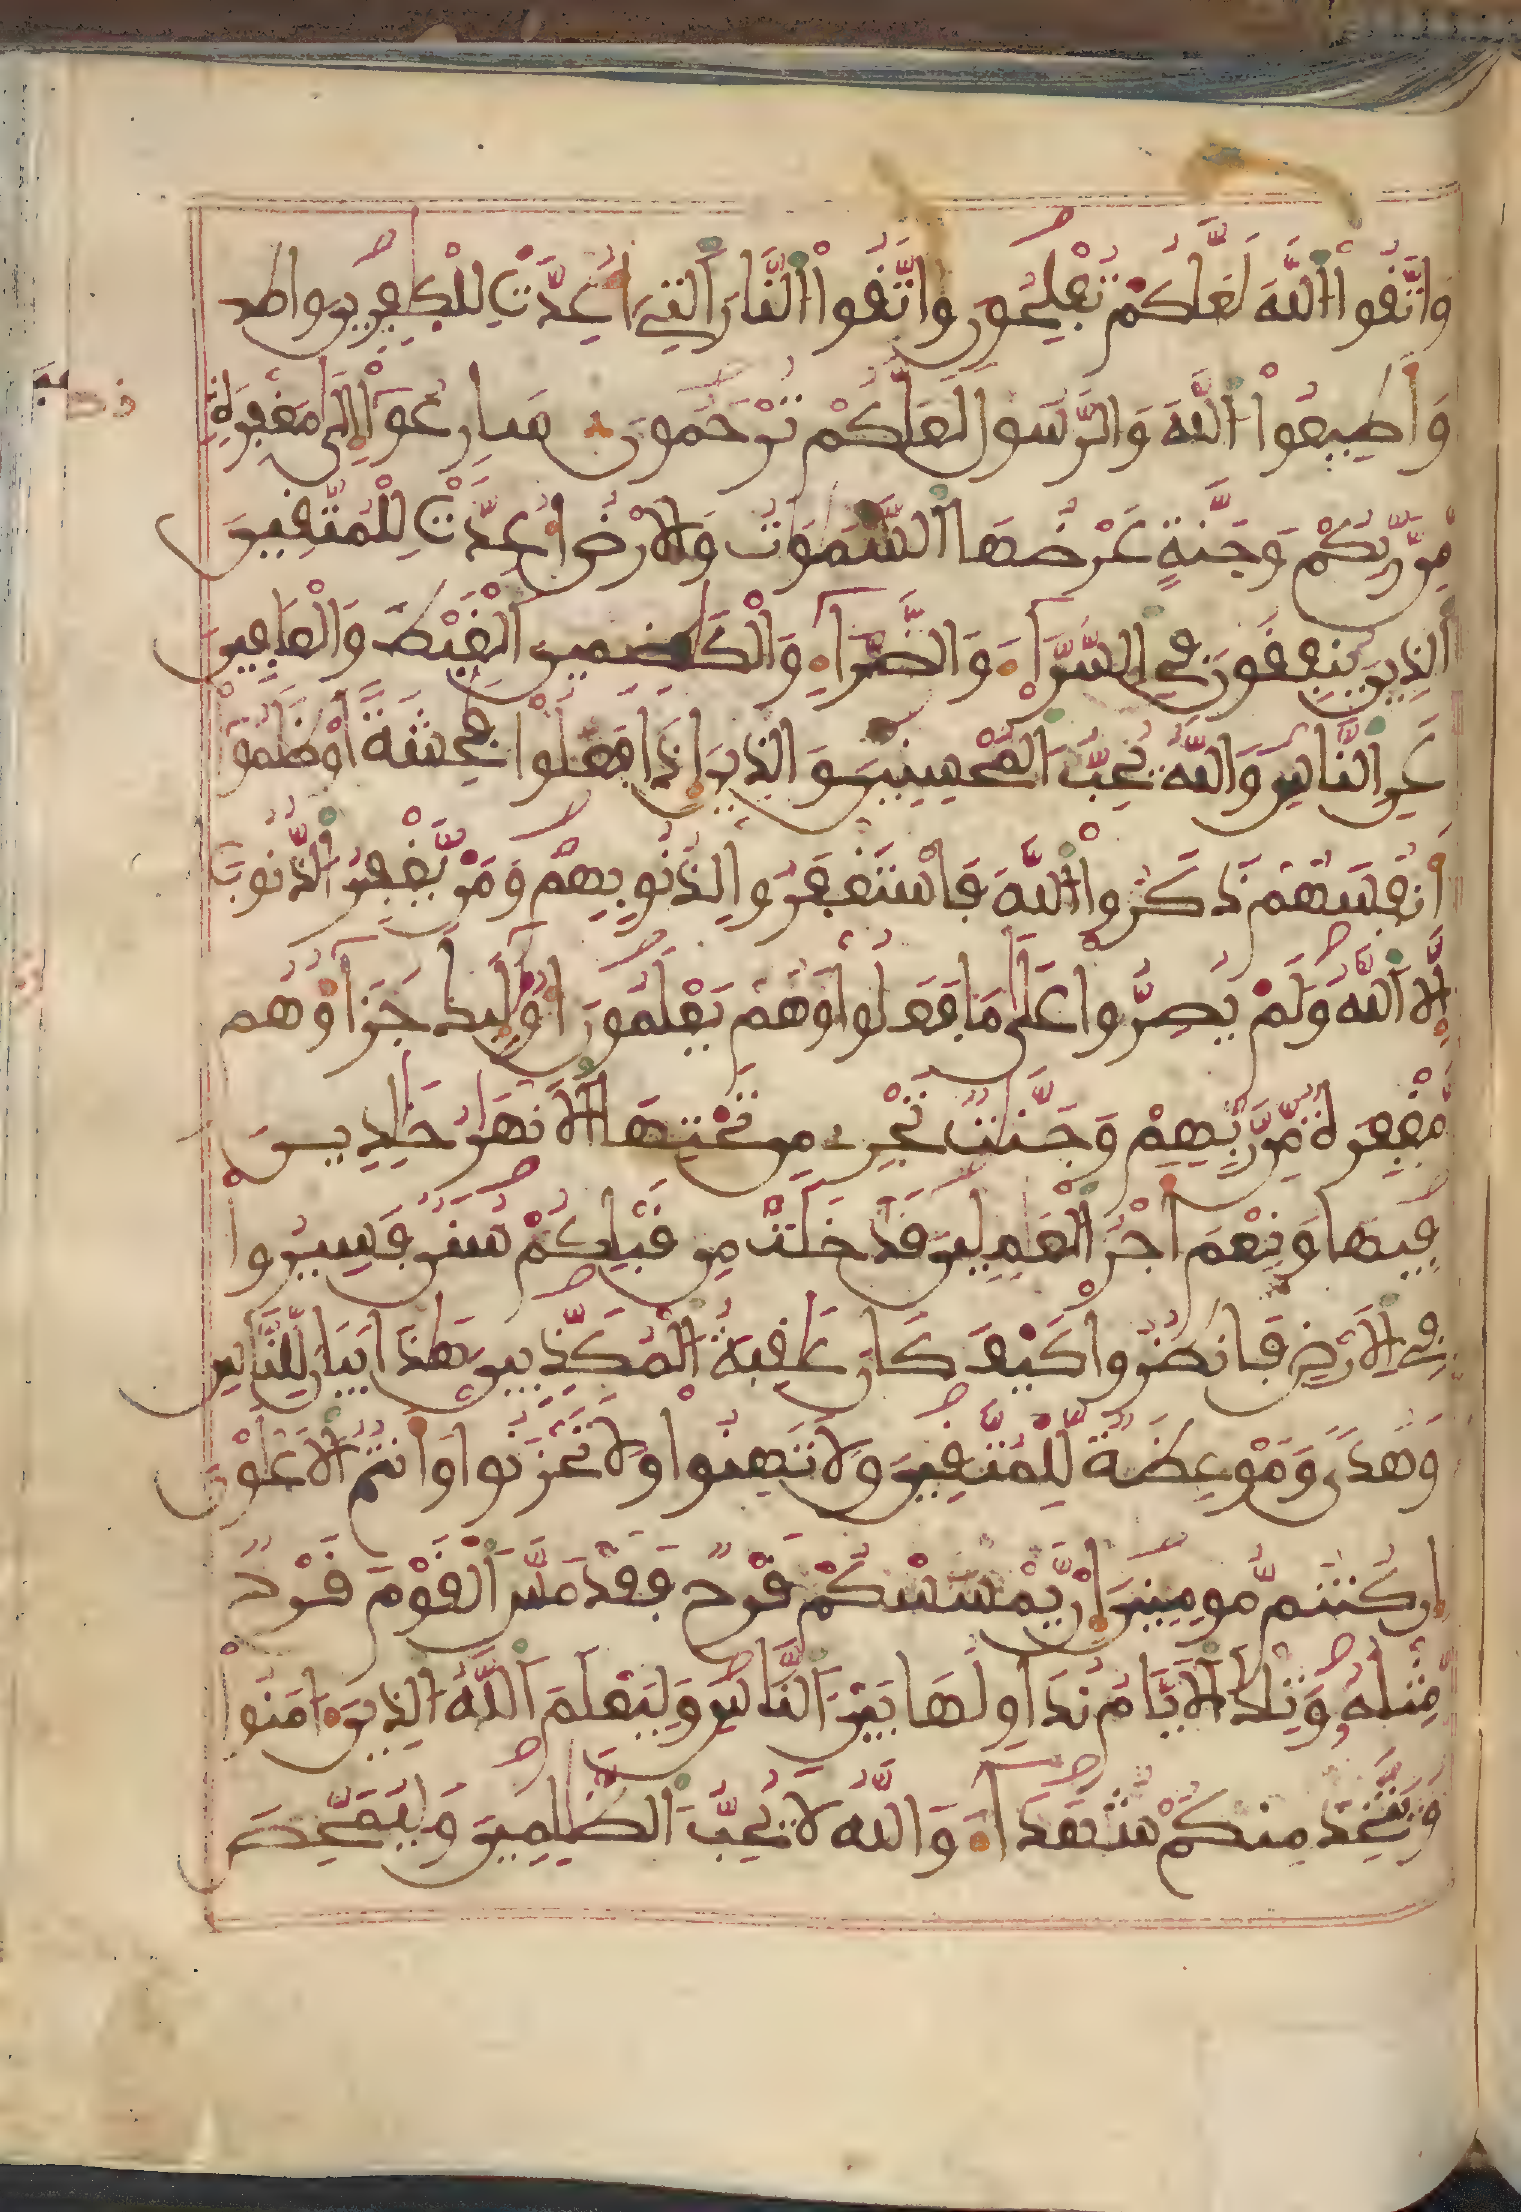 وَاتَّقُوا اللَّهَ لَعَلَّكُمْ تُفْلِحُونَ وَاتَّقُوا النَّارَ الَّتِي أُعِدَّتْ لِلْكَٰفِرِينَ واطـ
وَأَطِيعُوا اللَّهَ وَالرَّسُولَ لَعَلَّكُمْ تُرْحَمُونَ سَارِعُوا إِلَىٰ مَغْفِرَةٍ
مِّن رَّبِّكُمْ وَجَنَّةٍ عَرْضُهَا السَّمَٰوَٰتُ وَالْأَرْضُ أُعِدَّتْ لِلْمُتَّقِينَ
الَّذِينَ يُنفِقُونَ فِي السَّرَّاءِ وَالضَّرَّاءِ وَالْكَٰظِمِينَ الْغَيْظَ وَالْعَافِينَ
عَنِ النَّاسِ وَاللَّهُ يُحِبُّ الْمُحْسِنِينَ وَالَّذِينَ إِذَا فَعَلُوا فَٰحِشَةً أَوْ ظَلَمُوا
أَنفُسَهُمْ ذَكَرُوا اللَّهَ فَاسْتَغْفَرُوا لِذُنُوبِهِمْ وَمَن يَغْفِرُ الذُّنُوبَ
إِلَّا اللَّهُ وَلَمْ يُصِرُّوا عَلَىٰ مَا فَعَلُوا وَهُمْ يَعْلَمُونَ أُولَٰئِكَ جَزَاؤُهُم
مَّغْفِرَةٌ مِّن رَّبِّهِمْ وَجَنَّٰتٌ تَجْرِي مِن تَحْتِهَا الْأَنْهَٰرُ خَٰلِدِينَ
فِيهَا وَنِعْمَ أَجْرُ الْعَٰمِلِينَ قَدْ خَلَتْ مِن قَبْلِكُمْ سُنَنٌ فَسِيرُوا
فِي الْأَرْضِ فَانظُرُوا كَيْفَ كَانَ عَٰقِبَةُ الْمُكَذِّبِينَ هَٰذَا بَيَانٌ لِّلنَّاسِ
وَهُدًى وَمَوْعِظَةٌ لِّلْمُتَّقِينَ وَلَا تَهِنُوا وَلَا تَحْزَنُوا وَأَنتُمُ الْأَعْلَوْنَ
إِن كُنتُم مُّومِنِينَ إِن يَمْسَسْكُمْ قَرْحٌ فَقَدْ مَسَّ الْقَوْمَ قَرْحٌ
مِّثْلُهُ وَتِلْكَ الْأَيَّامُ نُدَاوِلُهَا بَيْنَ النَّاسِ وَلِيَعْلَمَ اللَّهُ الَّذِينَ ءَامَنُوا
وَيَتَّخِذَ مِنكُمْ شُهَدَاءَ وَاللَّهُ لَا يُحِبُّ الظَّٰلِمِينَ وَلِيُمَحِّصَ